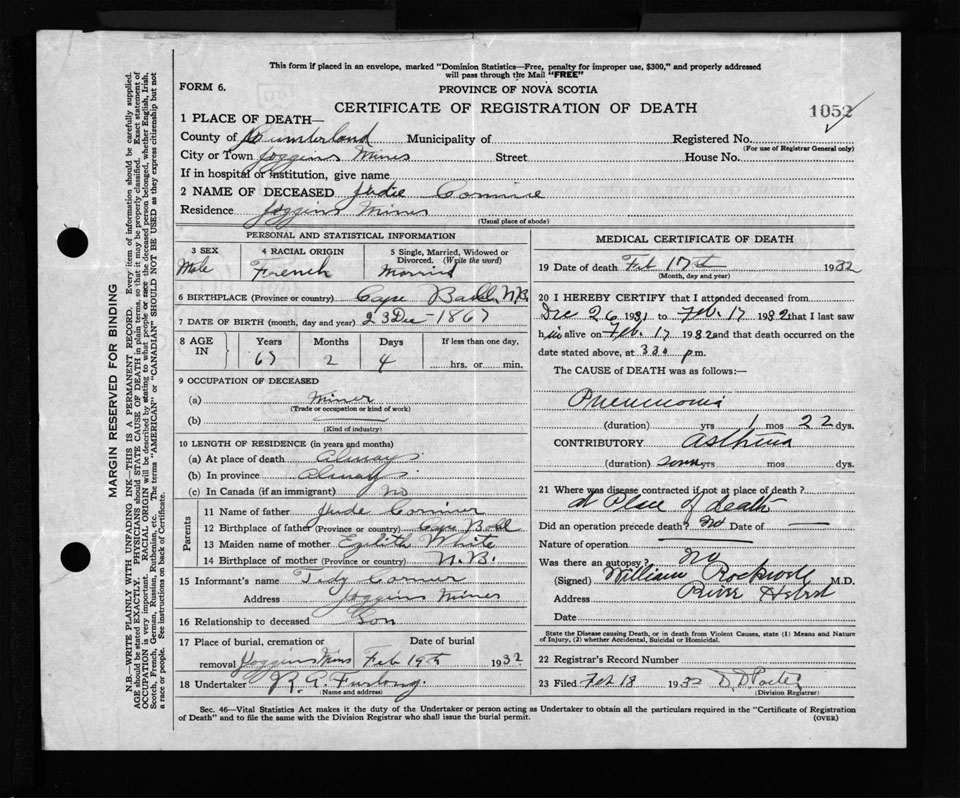 This form if placed in an envelope, marked "Dominion Statistics—Free, penalty for improper use, $300," and properly addressed
will pass through the Mail "FREE"
FORM 6.
PROVINCE OF NOVA SCOTIA
CERTIFICATE OF REGISTRATION OF DEATH
1052
1 PLACE OF DEATH—
County of Cumberland Municipality of Registered No.
(For use of Registrar General only)
City or Town Joggins Mines Street House No.
If in hospital or institution, give name
2 NAME OF DECEASED Jude
Residence Joggins Mines
(Usual place of abode)
PERSONAL AND STATISTICAL INFORMATION
3 SEX 4 RACIAL ORIGIN 5 Single, Married, Widowed or
Divorced. (Write the word)
Male French Married
6 BIRTHPLACE (Province or country) Cape N.B.
7 DATE OF BIRTH (month, day and year) 23 Dec - 1867
8 AGE IN Years Months Days If less than one day,
2 4 hrs. or min.
9 OCCUPATION OF DECEASED
(a) Miner
(Trade or occupation or kind of work)
(b)
(Kind of industry)
10 LENGTH OF RESIDENCE (in years and months)
(a) At place of death always
(b) In province always
(c) In Canada (if an immigrant) No
Parents
11 Name of father Jude
12 Birthplace of father (Province or country) Cape
13 Maiden name of mother White
14 Birthplace of mother (Province or country) N.B.
15 Informant's name
Address Joggins Mines
16 Relationship to deceased Son
17 Place of burial, cremation or Date of burial
removal Joggins Mines Feb 19th 1932
18 Undertaker R. A. Furlong.
(Name and address)
MEDICAL CERTIFICATE OF DEATH
19 Date of death Feb 17th 1932
(Month, day and year)
20 I HEREBY CERTIFY that I attended deceased from
Dec 26 1931 to Feb. 17 1932 that I last saw
him alive on Feb. 17 1932 and that death occurred on the
date stated above, at 330 p m.
The CAUSE of DEATH was as follows:—
Pneumonia
(duration) yrs 1 mos 22 dys.
CONTRIBUTORY
(duration) yrs mos dys.
21 Where was disease contracted if not at place of death?
at Place of death
Did an operation precede death? No Date of —
Nature of operation
Was there an autopsy? No
(Signed) William M.D.
Address River Hebert
Date
State the Disease causing Death, or in death from Violent Causes, state (1) Means and Nature
of Injury, (2) whether Accidental, Suicidal or Homicidal.
22 Registrar's Record Number
23 Filed Feb 18 1932 D D Porter
(Division Registrar)
Sec. 46—Vital Statistics Act makes it the duty of the Undertaker or person acting as Undertaker to obtain all the particulars required in the "Certificate of Registration
of Death" and to file the same with the Division Registrar who shall issue the burial permit.
(OVER)
MARGIN RESERVED FOR BINDING
N.B.—WRITE PLAINLY WITH UNFADING INK—THIS IS A PERMANENT RECORD. Every item of information should be carefully supplied.
AGE should be stated EXACTLY. PHYSICIANS should STATE CAUSE OF DEATH in plain terms, so that it may be properly classified. Exact statement of
OCCUPATION is very important. RACIAL ORIGIN will be described by stating to what people or race the deceased person belonged, whether English, Irish,
Scotch, French, German, Russian, Ruthenian, etc. The terms "AMERICAN" or "CANADIAN" SHOULD NOT BE USED as they express citizenship but not
a race or people. See instructions on back of Certificate.